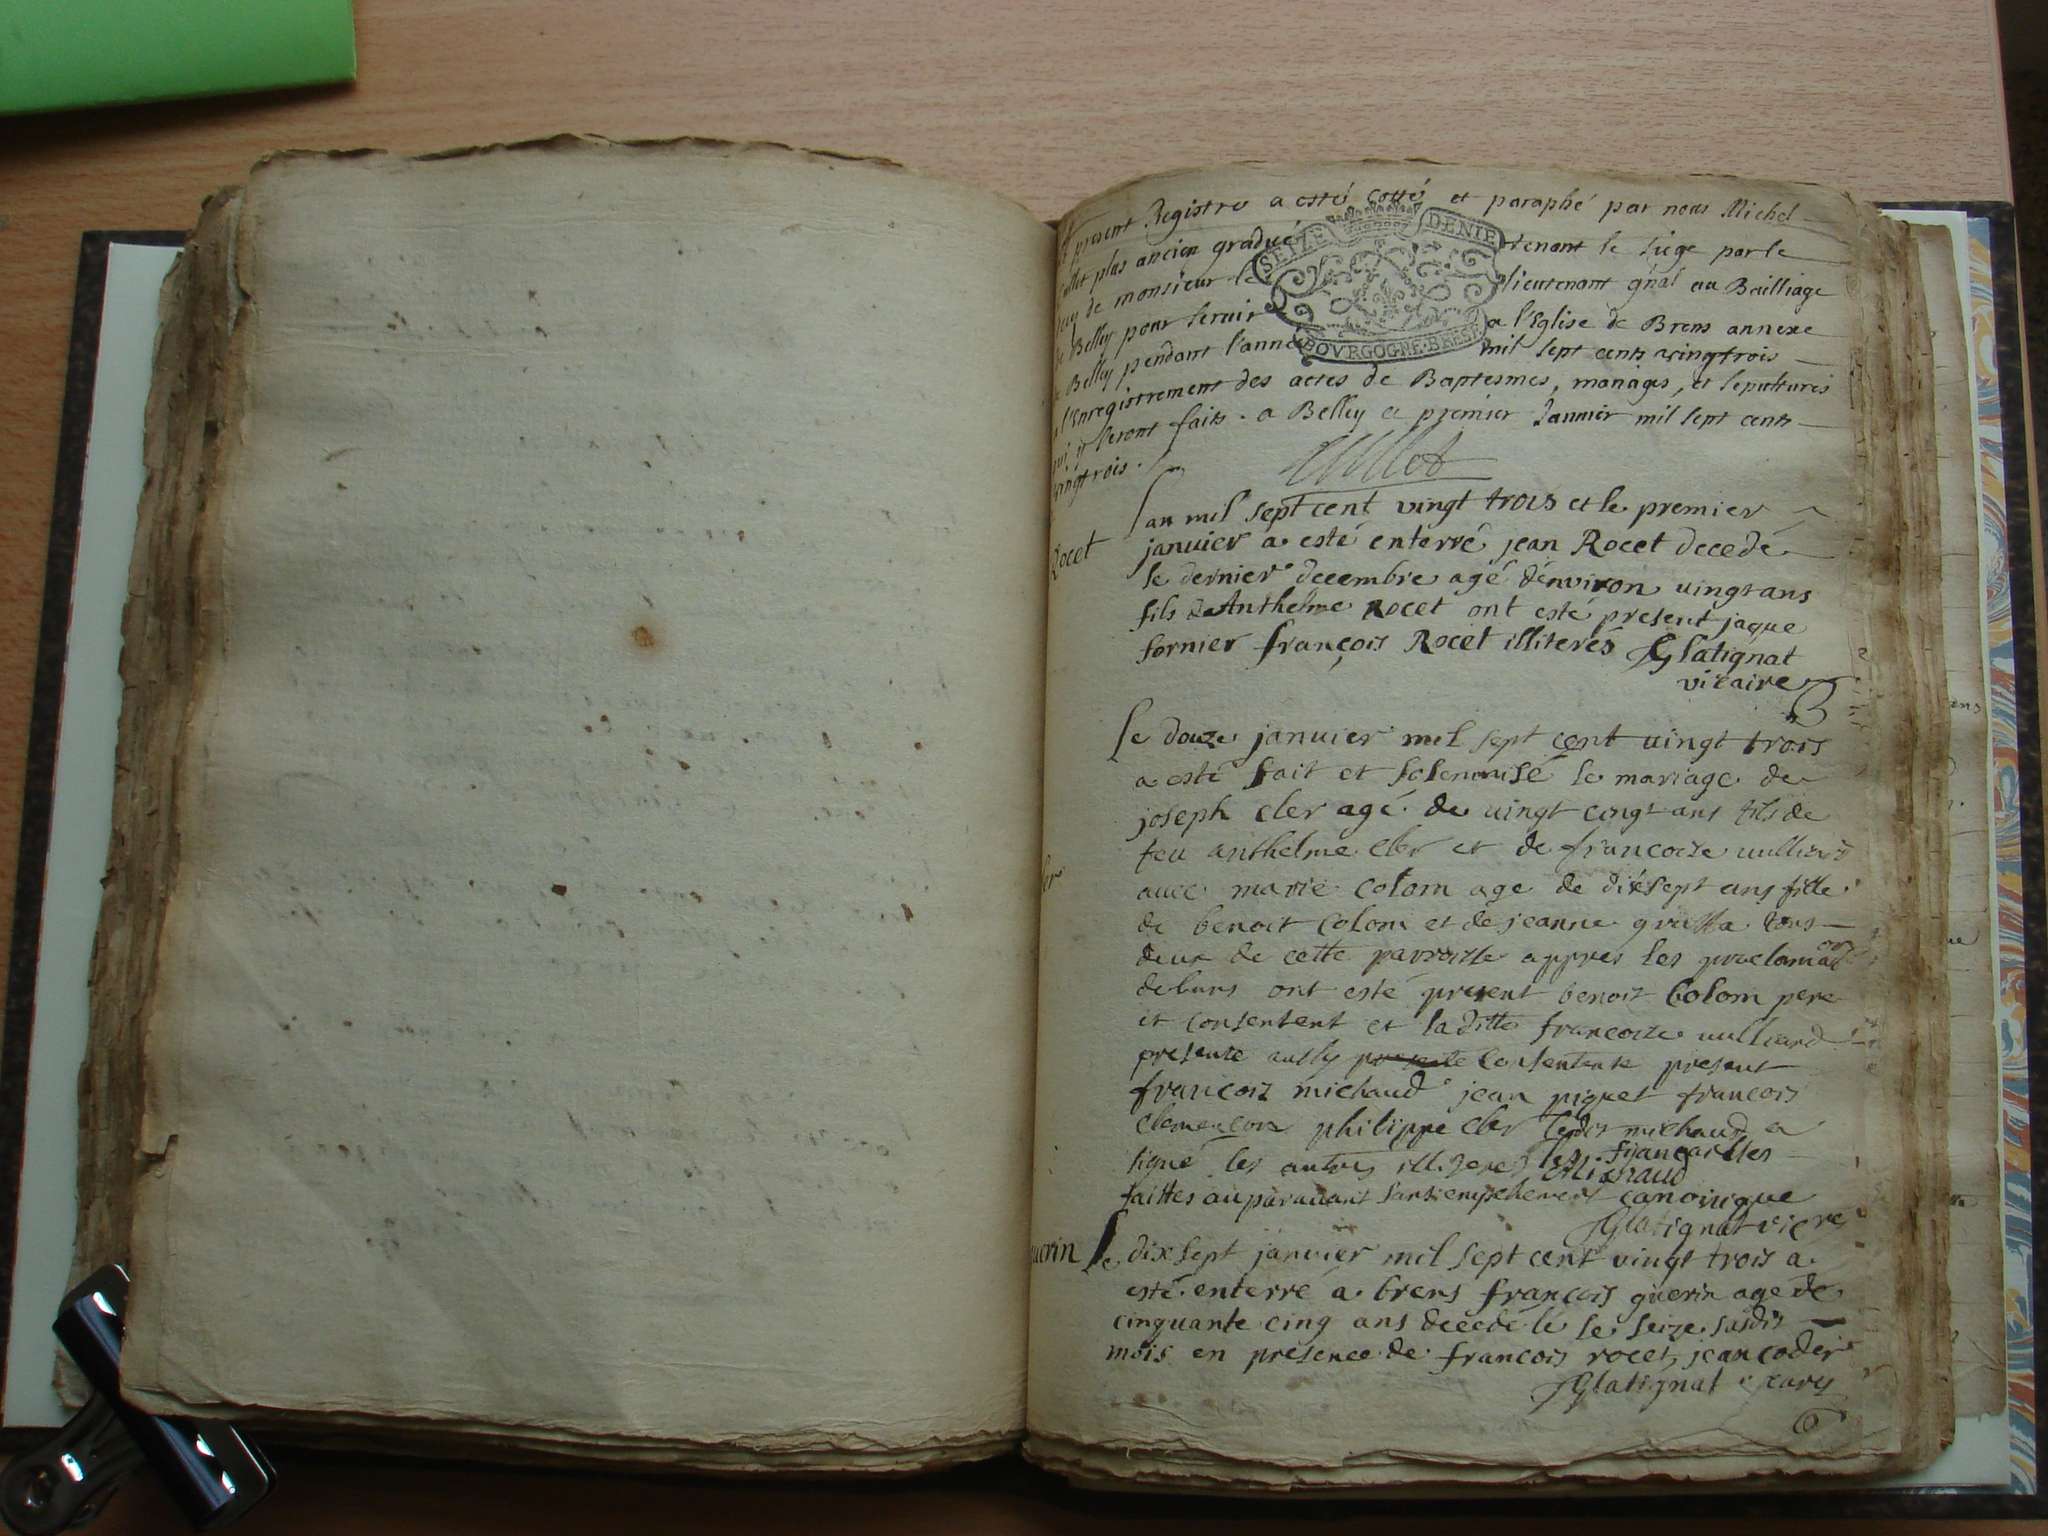 present Registre a esté cotté et paraphé par nous Michel
plus ancien gradué tenant le siege par le
de monsieur le lieutenant gñal au Bailliage
de Belley pour servir a l'Eglise de Brens annexe
Belley pendant l'année mil sept cents vingtrois
l'Enregistrement des actes de Baptesmes, mariages, et sepultures
qui y seront faits. a Belley ce premier Janvier mil sept cents
vingtrois.
SEIZE DENIE
BOVRGOGNE·BRESSE
Rocet
Lan mil sept cent vingt trois et le premier
janvier a esté enterré jean Rocet decedé
le dernier decembre agé denviron vingt ans
fils de Anthelme Rocet ont esté present jaque
fornier françois Rocet illiterés Glatignat
vicaire
Le douze janvier mil sept cent vingt trois
a esté fait et solemnisé le mariage de
joseph cler agé de vingt cinq ans fils de
feu anthelme cler et de francoise vulliard
avec marie colom age de dixsept ans fille
de benoit colom et de jeanne tous
deux de cette parroisse appres les proclamaons
deburs ont esté present benoit Colom pere
et consentent et laditte francoise vulliard
presente aussy presente consentente present
francois michaud jean piquet francois
clemencon philippe cler ledit michaud a
signé les autres illiteres les fiancailles
Michaud
faittes auparavant sans empechement canonique
Glatignat vicre
uerin
Le dixsept janvier mil sept cent vingt trois a
esté enterré a brens francois guerin age de
cinquante cinq ans decedé le seize susdis
mois en presence de francois rocet, jean coder
Glatignat